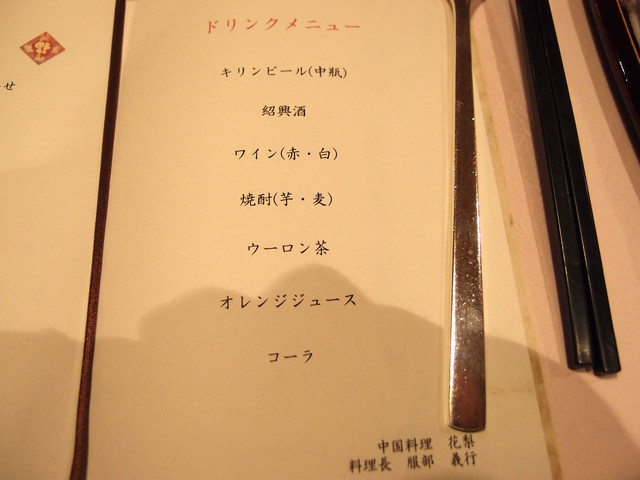 せ
ドリンクメニュー
キリンビール(中瓶)
紹興酒
ワイン(赤・白)
焼酎(芋・麦)
ウーロン茶
オレンジジュース
コーラ
中国料理 花梨
料理長 服部 義行